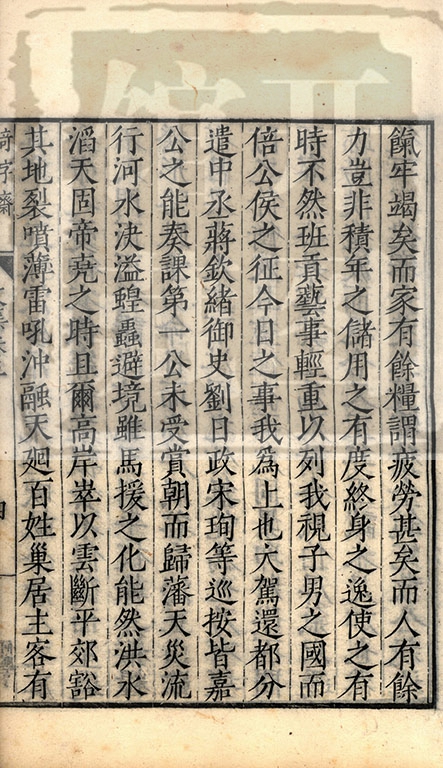 餼牢竭矣而家有餘糧謂疲勞甚矣而人有餘
力豈非積年之儲用之有度終身之逸使之有
時不然班貢藝事輕重以列我視子男之國而
倍公侯之征今日之事我為上也大駕還都分
遣中丞蔣欽緒御史劉日政宋珣等巡按皆嘉
公之能奏課第一公未受賞朝而歸藩天災流
行河水決溢蝗蟲避境雖馬援之化能然洪水
滔天固帝堯之時且爾高岸崒以雲斷平郊豁
其地裂噴薄雷吼沖融天迴百姓巢居主客有